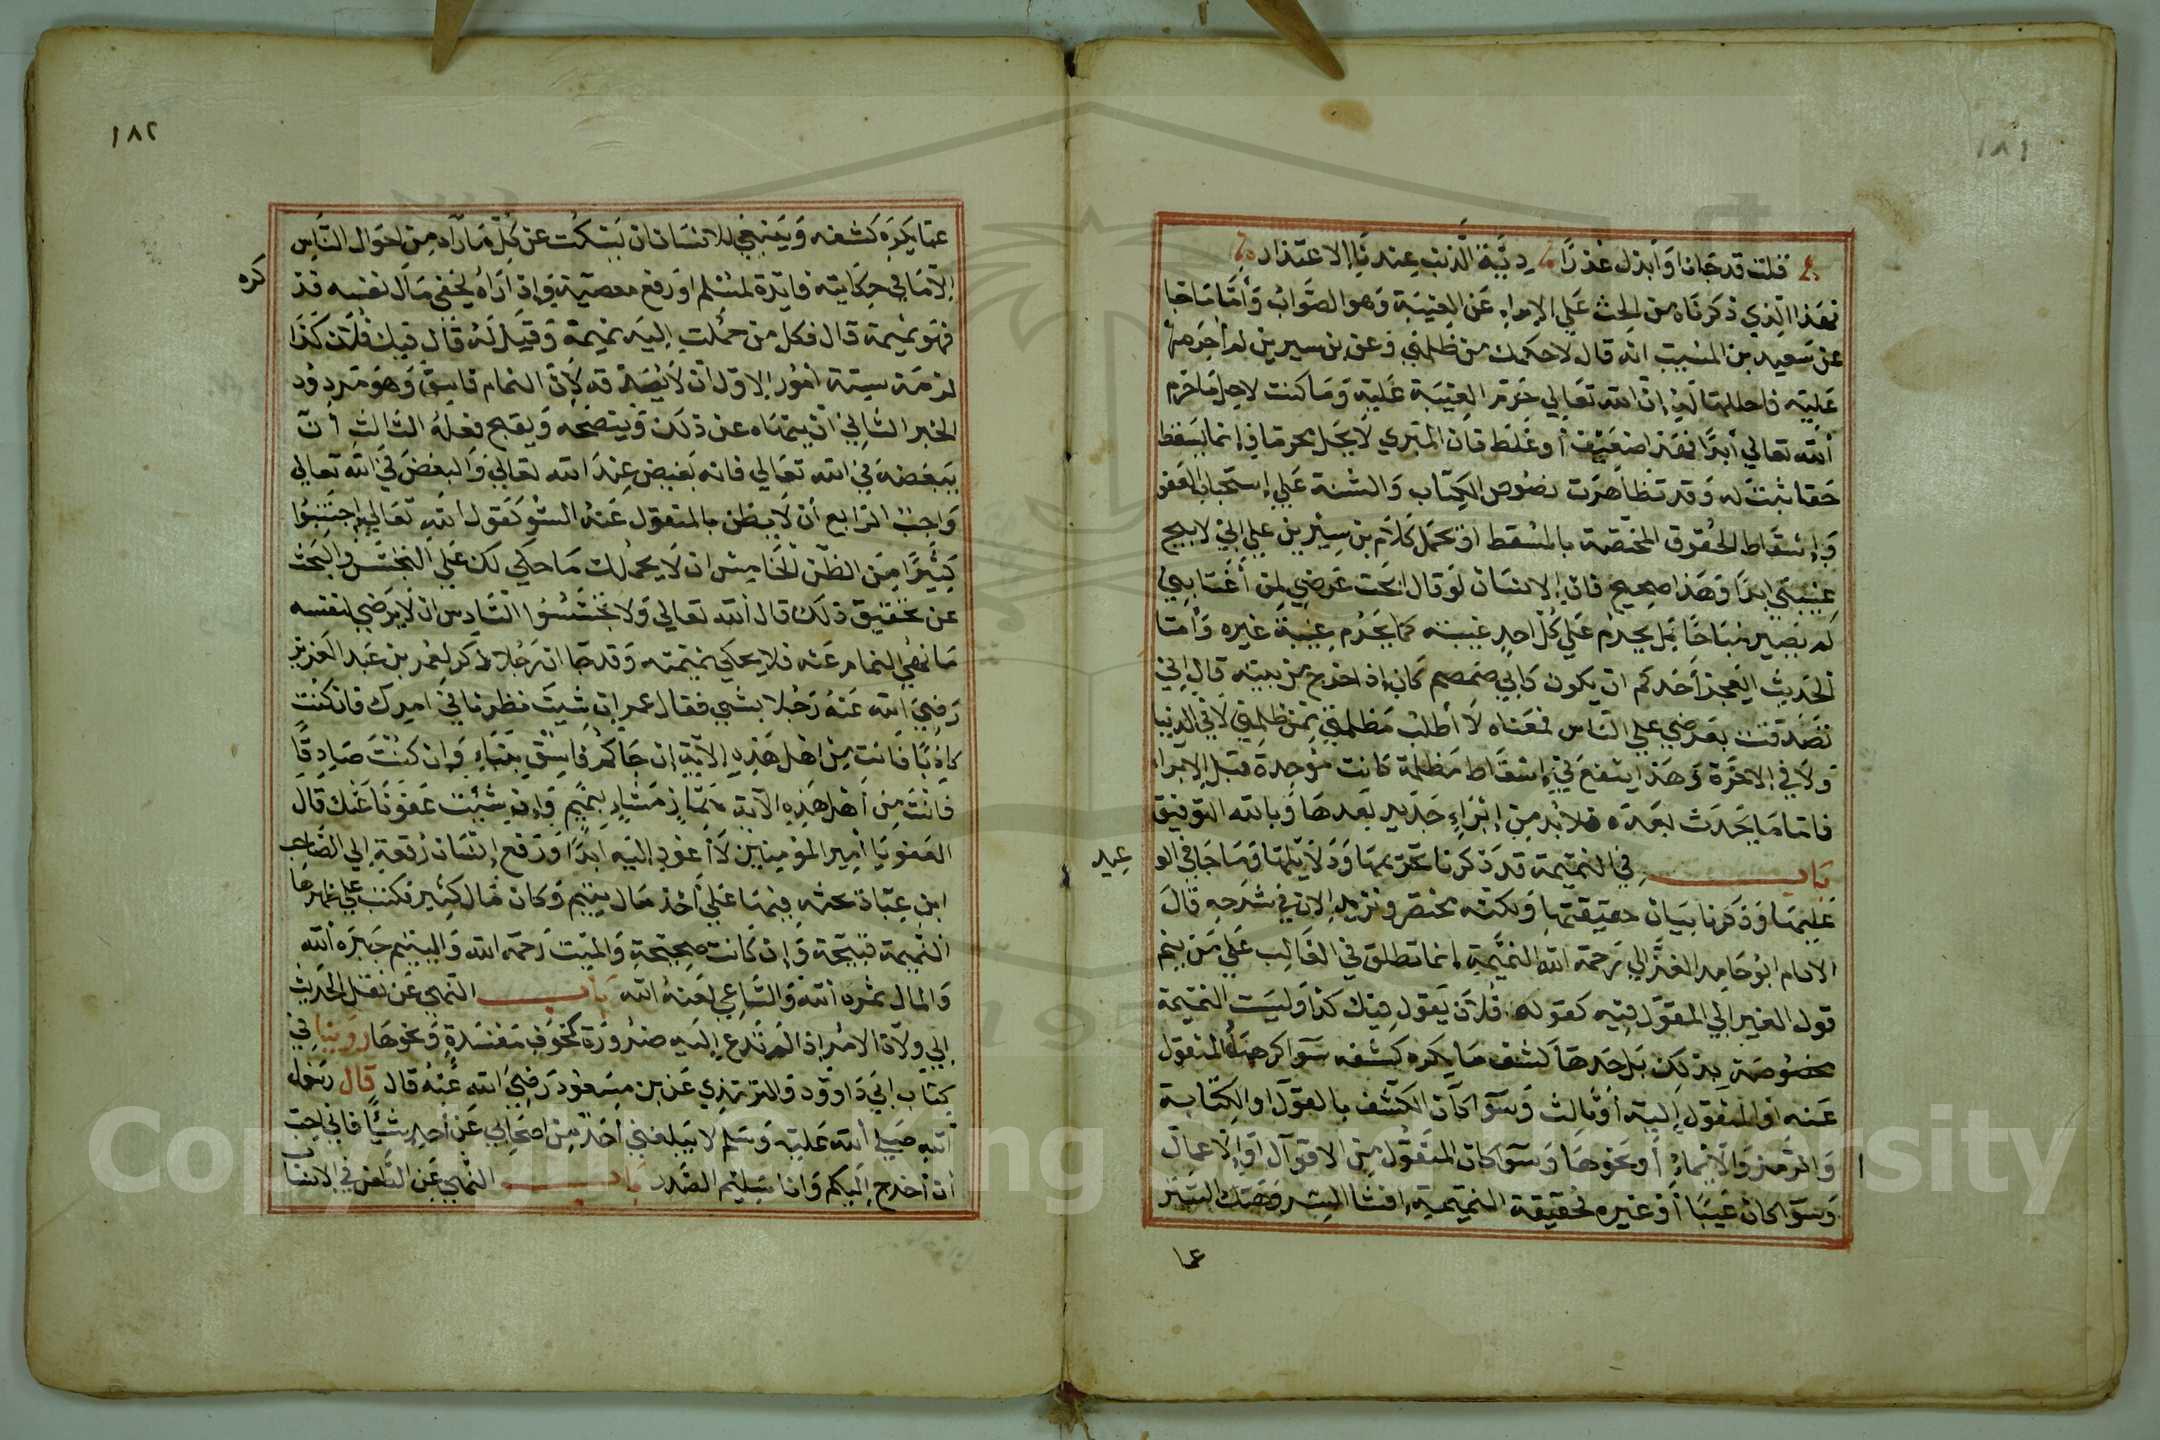 ١٨١
قلت قد جانا وابذل عذرا دية الذنب عندنا الاعتذار
فهذا الذي ذكرناه من الحث علي الابراء عن الغيبة وهو الصواب واما ما جا
عن سعيد بن المسيب انه قال لا احلل من ظلمني وعن بن سيرين لم احرمها
عليه فاحللها له ان الله تعالي حرم الغيبة عليه وما كنت لاحل ما حرم
الله تعالي ابدا فهذا ضعيف او غلط فان المبري لا يحل محرما وانما يسقط
حقا ثبت له وقد تظاهرت نصوص الكتاب والسنة علي استحباب العفو
واسقاط الحقوق المختصة بالمسقط او يحمل كلام بن سيرين علي اني لا ابيح
غيبتي ابدا وهذا صحيح فان الانسان لو قال ابحت عرضي لمن اغتابني
لم يصير مباحا بل يحرم علي كل احد غيبته كما يحرم غيبة غيره واما
الحديث ايعجز احدكم ان يكون كابي ضمضم كان اذا خرج من بيته قال اني
تصدقت بعرضي علي الناس فمعناه لا اطلب مظلمتي ممن ظلمني لا في الدنيا
ولا في الاخرة وهذا ينفع في اسقاط مظلمة كانت موجودة قبل الابراء
فاما ما يحدث بعده فلا بد من ابراء جديد بعدها وبالله التوفيق
باب في النميمة قد ذكرنا تحريمها ودلايلها وما جا في الو
عيد
عليها وذكرنا بيان حقيقتها ولكنه مختصر ونزيد الان في شرحه قال
الامام ابو حامد الغزالي رحمه الله النميمة انما تطلق في الغالب علي من ينم
قول الغير الي المقول فيه كقوله فلان يقول فيك كذا وليست النميمة
مخصوصة بذلك بل حدها كشف ما يكره كشفه سوا كرهه المنقول
عنه او المنقول اليه او ثالث وسوا كان الكشف بالقول او الكتابة
والرمز والايماء او نحوها وسوا كان المنقول من الاقوال او الاعمال
وسوا كان عيبا او غيره فحقيقة النميمة افشا السر وهتك الستر
عما
١٨٢
عما يكره كشفه وينبغي للانسان ان يسكت عن كل ما راه من احوال الناس
الا ما في حكايته فايدة لمسلم او رفع معصية واذا راه يخفي مال نفسه فذ
كره
فهو نميمة قال فكل من حملت اليه نميمة وقيل له قال فيك فلان كذا
لزمه ستة امور الاول ان لا يصدقه لان النمام فاسق وهو مردود
الخبر الثاني ان ينهاه عن ذلك وينصحه ويقبح فعله الثالث ان
يبغضه في الله تعالي فانه بغيض عند الله تعالي والبغض في الله تعالي
واجب الرابع ان لا يظن بالمنقول عنه السو لقول الله تعالي اجتنبوا
كثيرا من الظن الخامس ان لا يحملك ما حكي لك علي التجسس والبحث
عن تحقيق ذلك قال الله تعالي ولا تجسسوا السادس ان لا يرضي لنفسه
ما نهي النمام عنه فلا يحكي نميمته وقد جا ان رجلا ذكر لعمر بن عبد العزيز
رضي الله عنه رجلا بشي فقال عمر ان شيت نظرنا في امرك فان كنت
كاذبا فانت من اهل هذه الاية ان جاكم فاسق بنباء وان كنت صادقا
فانت من اهل هذه الاية هماز مشاء بنميم وان شيت عفونا عنك قال
العفو يا امير المومنين لا اعود اليه ابدا ورفع انسان رقعة الي الصاحب
ابن عباد يحثه فيها علي اخذ مال يتيم وكان مال كثير فكتب علي ظهرها
النميمة قبيحة وان كانت صحيحة والميت رحمه الله واليتيم جبره الله
والمال ثمره الله والساعي لعنه الله باب النهي عن نقل الحديث
الي ولاة الامر اذا لم تدع اليه ضرورة كخوف مفسدة ونحوها روينا في
كتاب ابي داوود والترمذي عن بن مسعود رضي الله عنه قال قال رسول
الله صلي الله عليه وسلم لا يبلغني احد من اصحابي عن احد شيئا فاني احب
ان اخرج اليكم وانا سليم الصدر باب النهي عن الطعن في الانساب